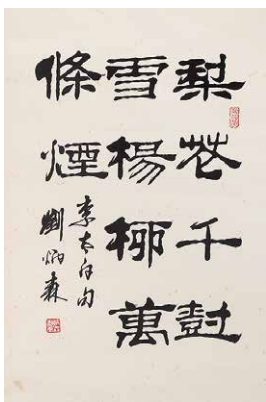 梨花千樹
雪楊柳萬
條煙
李太白句
劉炳森